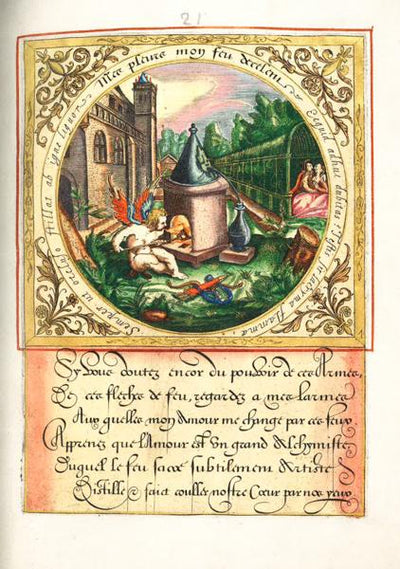 21
Mes pleurs mon feu decelent
Ecquid adhuc dubitas? Testis sit lacryma flammæ
Semper ut occluso stillat ab igne liquor
Sy Vous doutez encor du pouvoir de ces Armes,
De ces fleches de feu, regardez a mes larmes
Aux quelles mon Amour me change par ces feux.
Apprenez que l'Amour est Un grand Alchymiste
Duquel le feu sacre subtilement Artiste
Distille & faict couller nostre Cœur par nos yeux